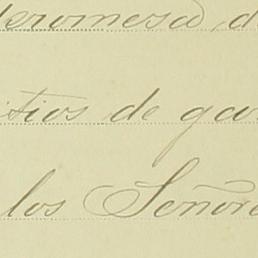 deromesa, d
itios de ga
los Señore